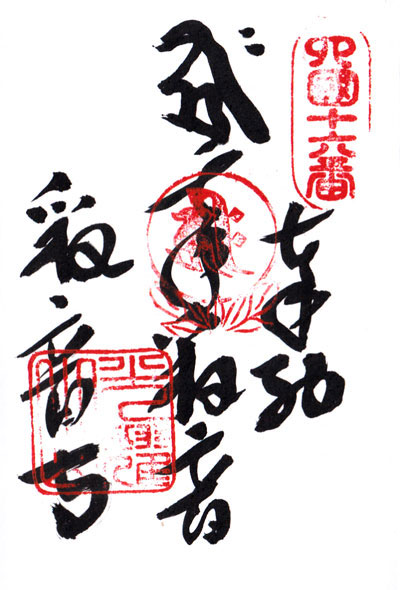 四国十六番
奉納
千手観音
観音寺